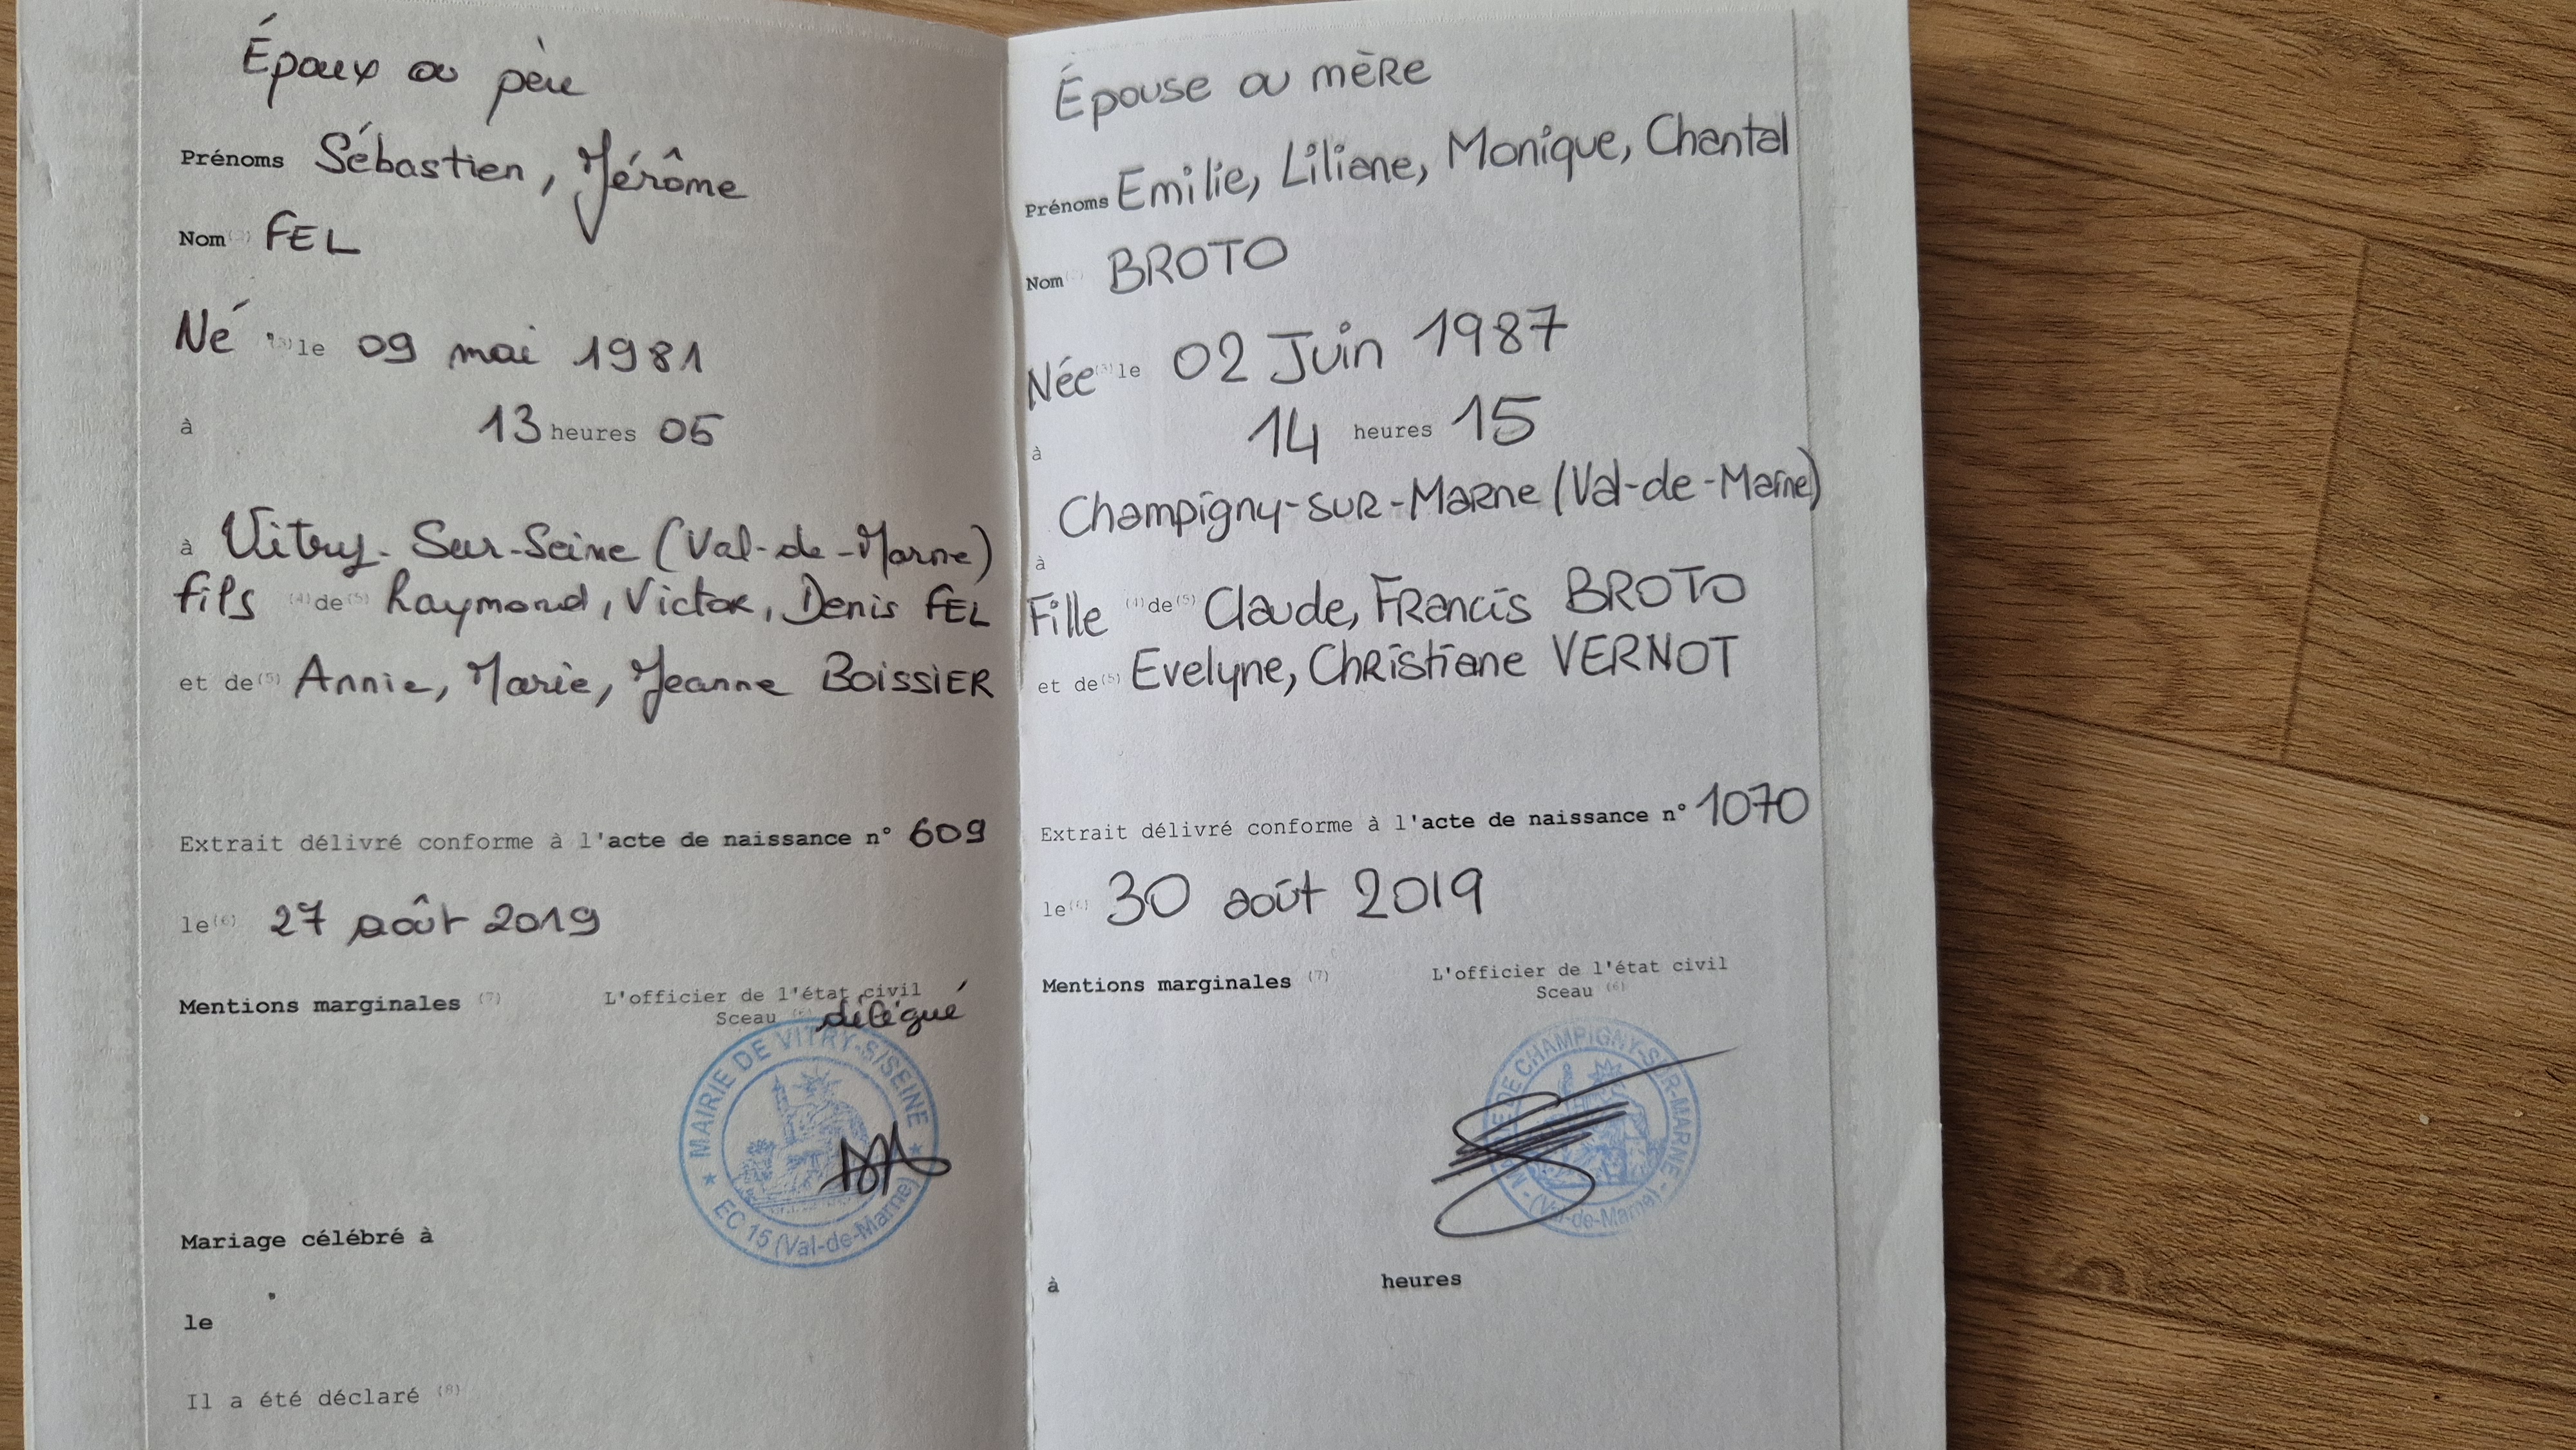 Époux ou père
Prénoms Sébastien, Jérôme
Nom FEL
Né (3) le 09 mai 1981
à 13 heures 05
à Vitry-Sur-Seine (Val-de-Marne)
fils (4) de (5) Raymond, Victor, Denis FEL
et de (5) Annie, Marie, Jeanne BOISSIER
Extrait délivré conforme à l'acte de naissance n° 609
le (6) 27 août 2019
Mentions marginales (7)
L'officier de l'état civil
délégué
Sceau (6)
MAIRIE DE VITRY-S/SEINE
EC 15 (Val-de-Marne)
Mariage célébré à
le
Il a été déclaré (8)
Épouse ou mère
Prénoms Emilie, Liliane, Monique, Chantal
Nom BROTO
Née (3) le 02 Juin 1987
à 14 heures 15
Champigny-sur-Marne (Val-de-Marne)
à
Fille (4) de (5) Claude, Francis BROTO
et de (5) Evelyne, Christiane VERNOT
Extrait délivré conforme à l'acte de naissance n° 1070
le (6) 30 août 2019
Mentions marginales (7)
L'officier de l'état civil
Sceau (6)
DE CHAMPIGNY-SUR-MARNE
(Val-de-Marne)
à heures